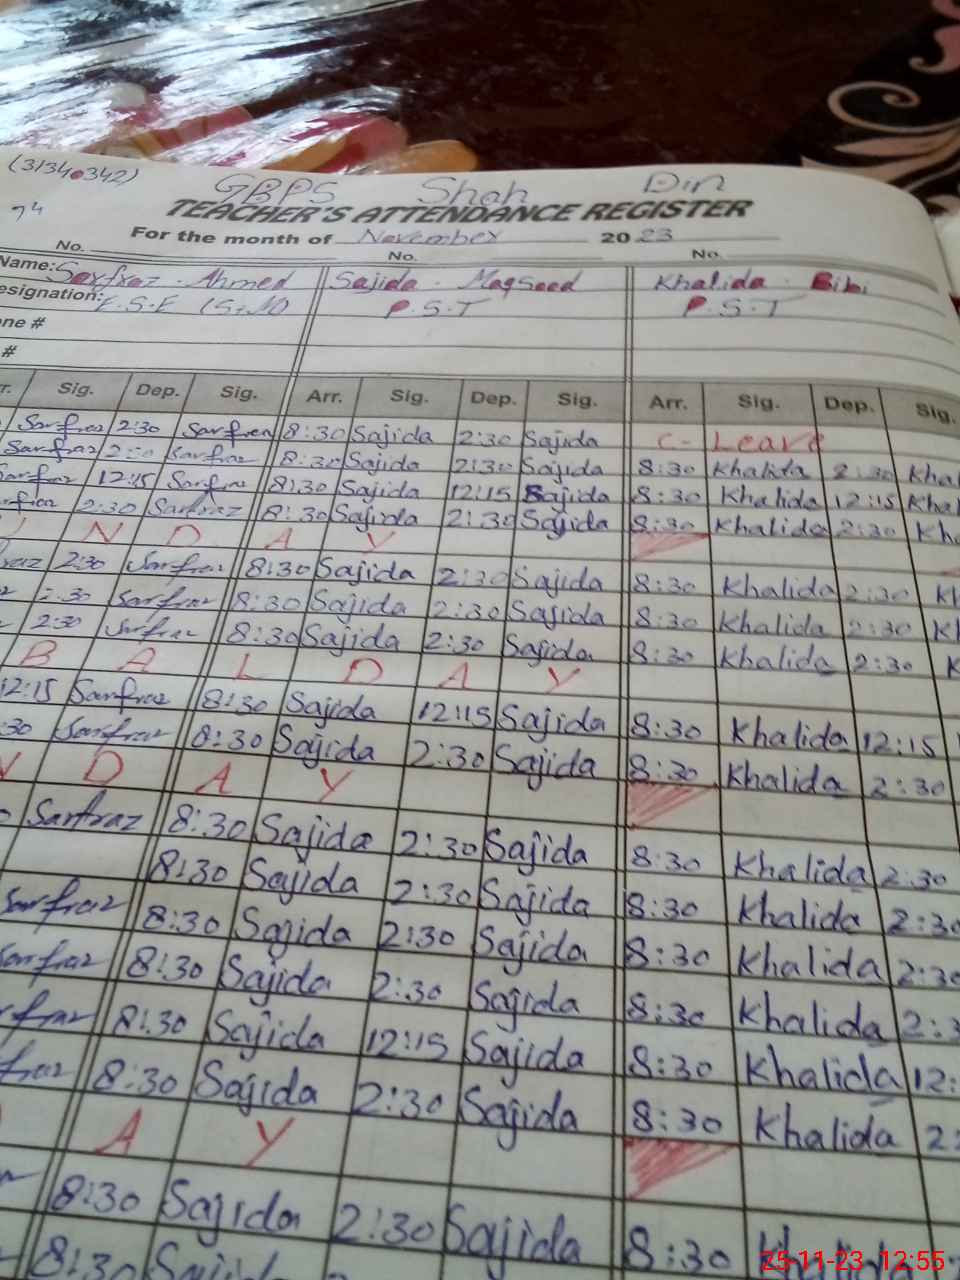 (31340342)
GBPS Shah Din
TEACHER'S ATTENDANCE REGISTER
For the month of November 2023
No. No. No.
Name: Sarfraz Ahmed Sajida Maqsood Khalida Bibi
esignation: E.S.E (S.M) P.S.T P.S.T
ne #
#
r. Sig. Dep. Sig. Arr. Sig. Dep. Sig. Arr. Sig. Dep. Sig.
Sarfraz 2:30 Sarfraz 8:30 Sajida 2:30 Sajida C- Leave
Sarfraz 2:30 Sarfraz 8:30 Sajida 2:30 Sajida 8:30 Khalida 2:30 Khal
Sarfraz 12:15 Sarfraz 8:30 Sajida 12:15 Sajida 8:30 Khalida 12:15 Kha
rfraz 2:30 Sarfraz 8:30 Sajida 2:30 Sajida 8:30 Khalida 2:30 Kh
N D A Y
raz 2:30 Sarfraz 8:30 Sajida 2:30 Sajida 8:30 Khalida 2:30 Kh
2:30 Sarfraz 8:30 Sajida 2:30 Sajida 8:30 Khalida 2:30 K
2:30 Sarfraz 8:30 Sajida 2:30 Sajida 8:30 Khalida 2:30 K
B A L D A Y
12:15 Sarfraz 8:30 Sajida 12:15 Sajida 8:30 Khalida 12:15
:30 Sarfraz 8:30 Sajida 2:30 Sajida 8:30 Khalida 2:30
N D A Y
Sarfraz 8:30 Sajida 2:30 Sajida 8:30 Khalida 2:30
8:30 Sajida 2:30 Sajida 8:30 Khalida 2:30
Sarfraz 8:30 Sajida 2:30 Sajida 8:30 Khalida 2:30
Sarfraz 8:30 Sajida 2:30 Sajida 8:30 Khalida 2:3
rfraz 8:30 Sajida 12:15 Sajida 8:30 Khalida 12:
fraz 8:30 Sajida 2:30 Sajida 8:30 Khalida 2:
A Y
8:30 Sajida 2:30 Sajida 8:30
8:30 Sajida
25-11-23 12:55